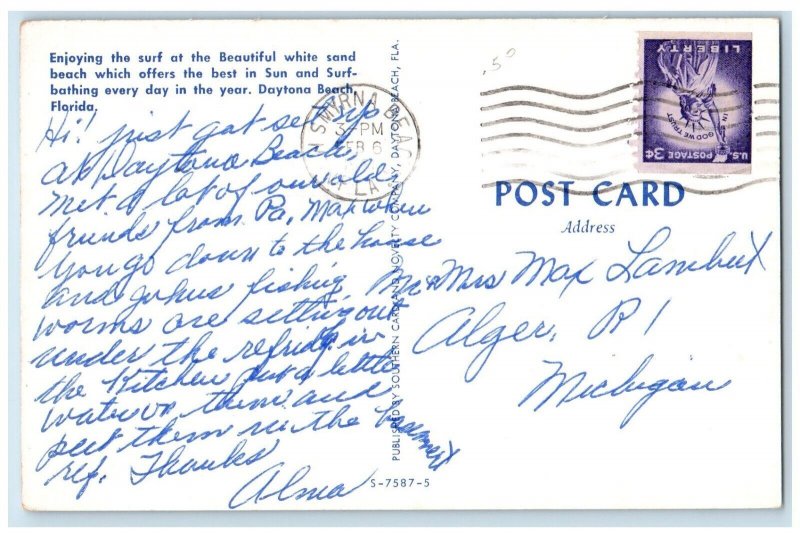 Enjoying the surf at the Beautiful white sand
beach which offers the best in Sun and Surf-
bathing every day in the year. Daytona Beach,
Florida.
Hi! just got set up
at Daytona Beach,
met a lot of our old
friends from Pa, Max when
you go down to the house
and Johns fishing
worms are setting out
under the refridg in
the Kitchen put a little
water on them and
put them in the basement
ref. Thanks
Alma
SMYRNA BEACH
3-PM
FEB 6
FLA.
PUBLISHED BY SOUTHERN CARD AND NOVELTY COMPANY, DAYTONA BEACH, FLA.
S-7587-5
.50
LIBERTY
IN GOD WE TRUST
U.S. POSTAGE 3¢
POST CARD
Address
Mr & Mrs Max Lambert
Alger, R1
Michigan